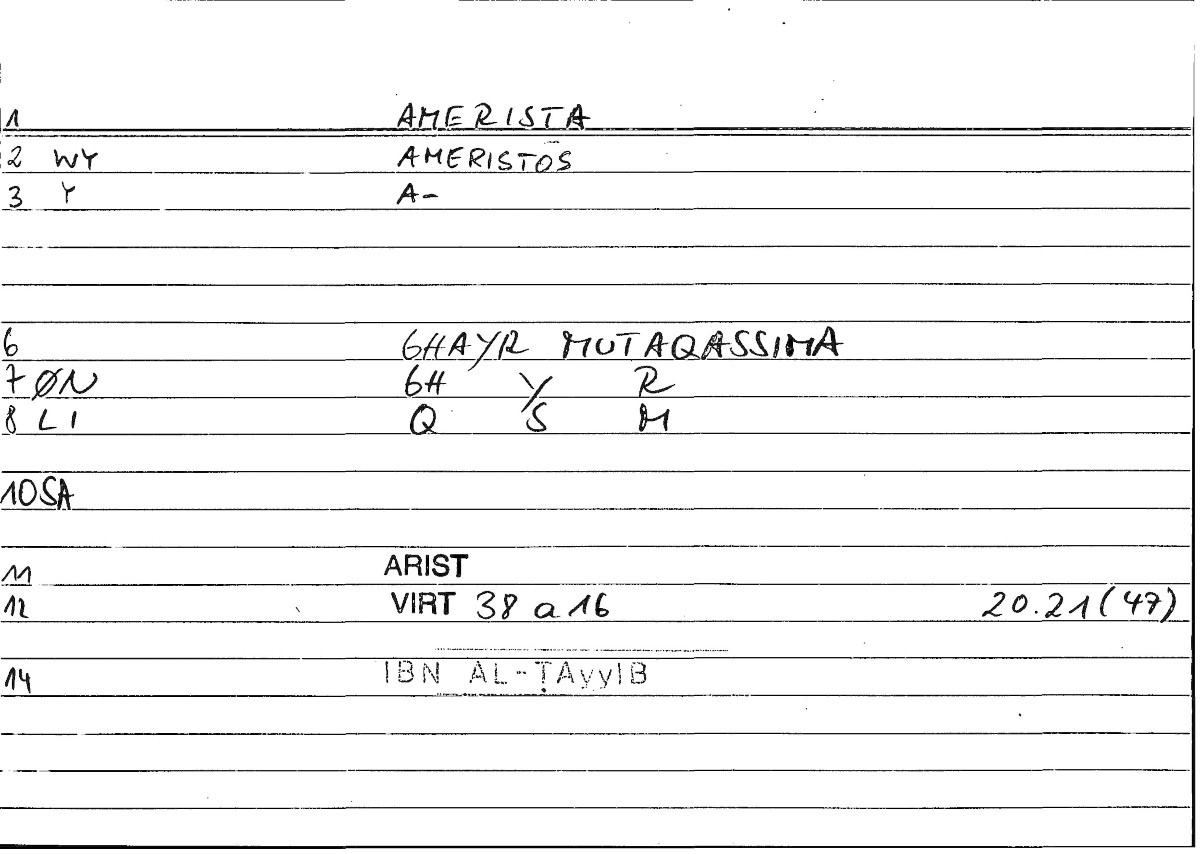 1 AMERISTA
2 WY AMERISTOS
3 Y A-
6 GHAYR MUTAQASSIMA
7 ØN GH Y R
8 LI Q S M
10 SA
11 ARIST
12 VIRT 38 a 16 20.21 (47)
14 IBN AL-ṬAyyIB